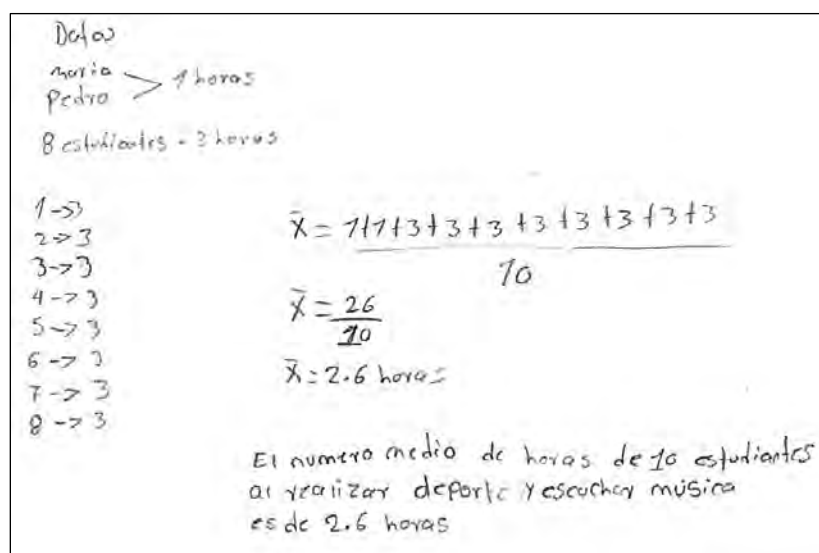 Datos
maria
Pedro > 1 horas
8 estudiantes - 3 horas
1 -> 3
2 -> 3
3 -> 3
4 -> 3
5 -> 3
6 -> 3
7 -> 3
8 -> 3
x̄ = 1+1+3+3+3+3+3+3+3+3
10
x̄ = 26
10
x̄ = 2.6 horas
El numero medio de horas de 10 estudiantes
al realizar deporte y escuchar música
es de 2.6 horas